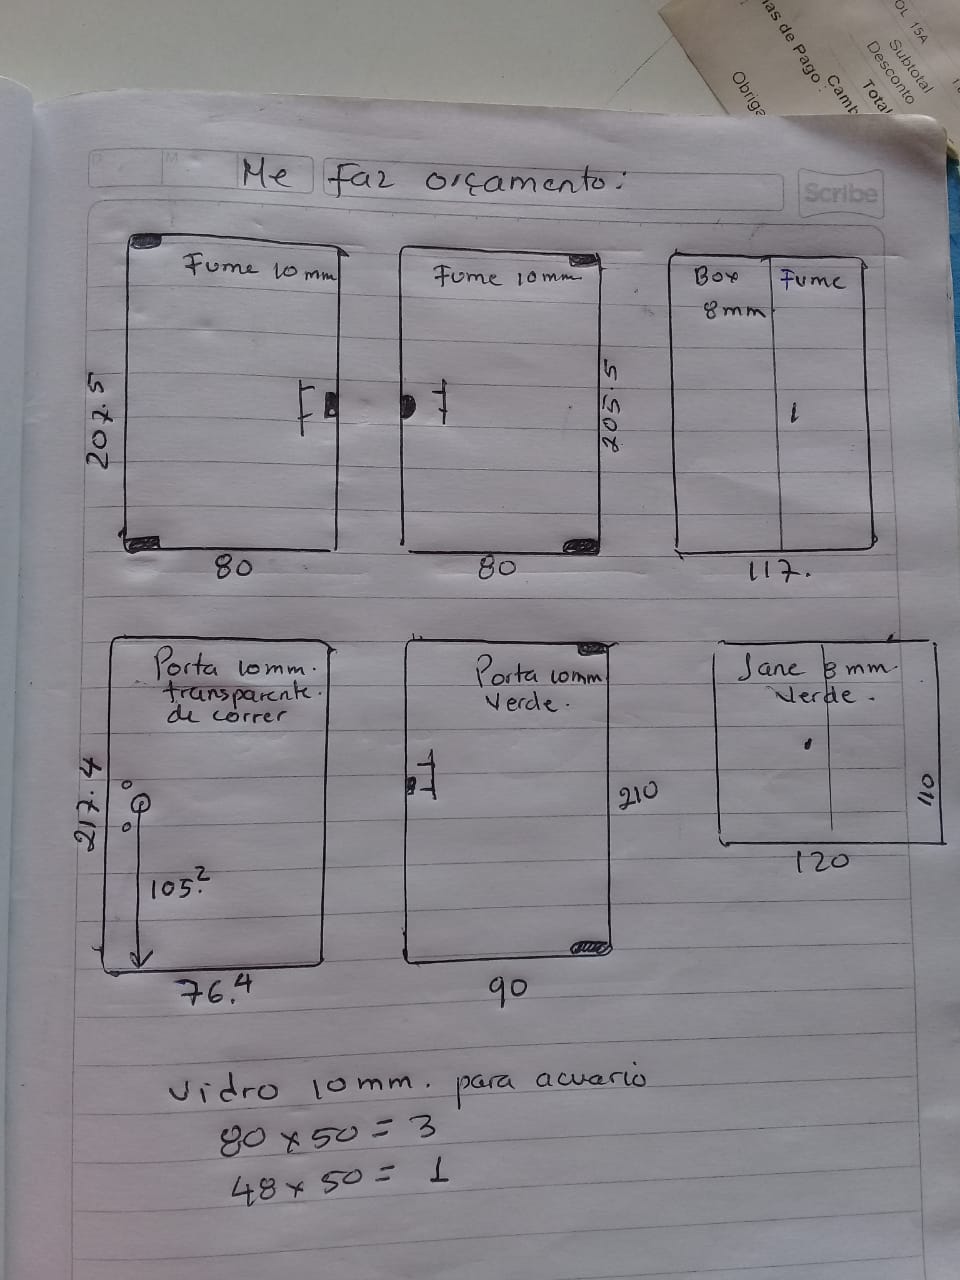 OL 15A
Subtotal
Desconto
Total
ias de Pago :
Camb
Obriga
Scribe
Me faz orçamento:
Fume 10 mm
207.5
80
Fume 10 mm
205.5
80
Box Fume
8 mm
117.
Porta 10 mm.
transparente.
de correr
217.4
105.2
76.4
Porta 10 mm
Verde.
210
90
Jane 8 mm
Verde.
110
120
Vidro 10 mm. para acuario
80 x 50 = 3
48 x 50 = 1